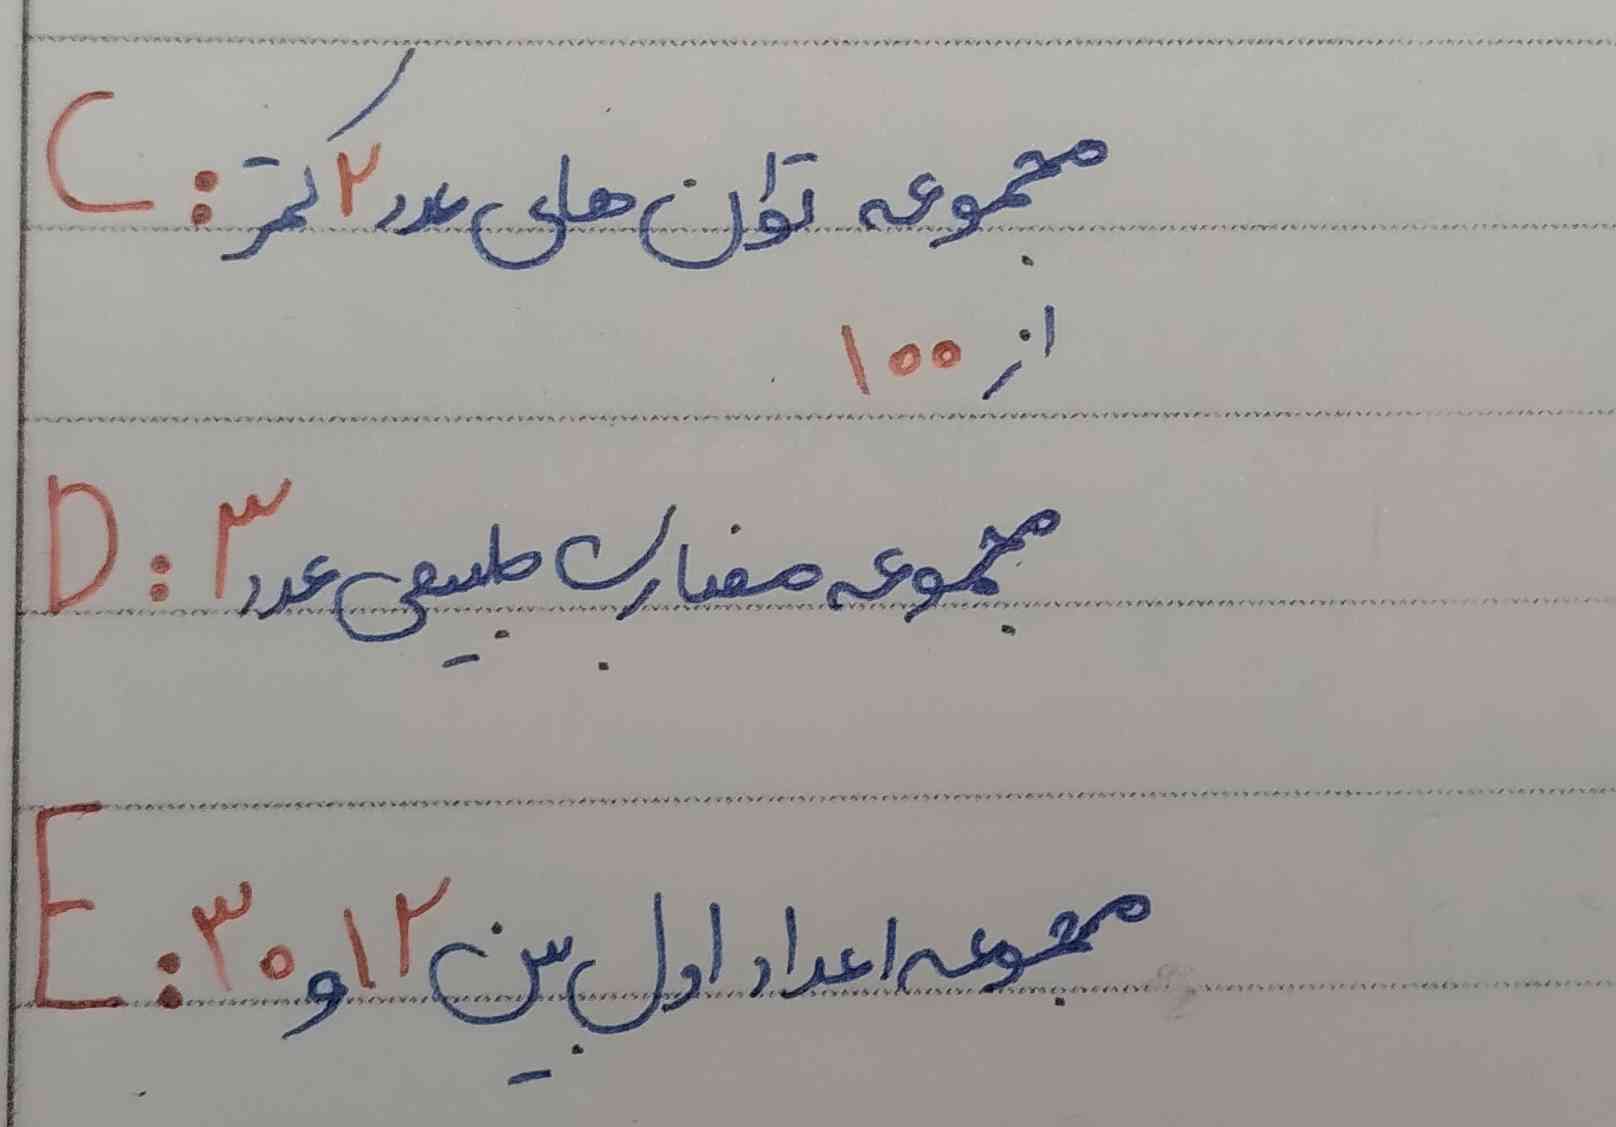 C: مجموعه توان های عدد ۲ کمتر
از ۱۰۰
D: مجموعه مضارب طبیعی عدد ۳
E: مجموعه اعداد اول بین ۱۲ و ۳۰